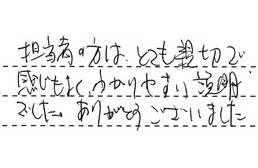 担当者の方は、とても親切で
感じもよく、わかりやすい説明
でした。ありがとうございました